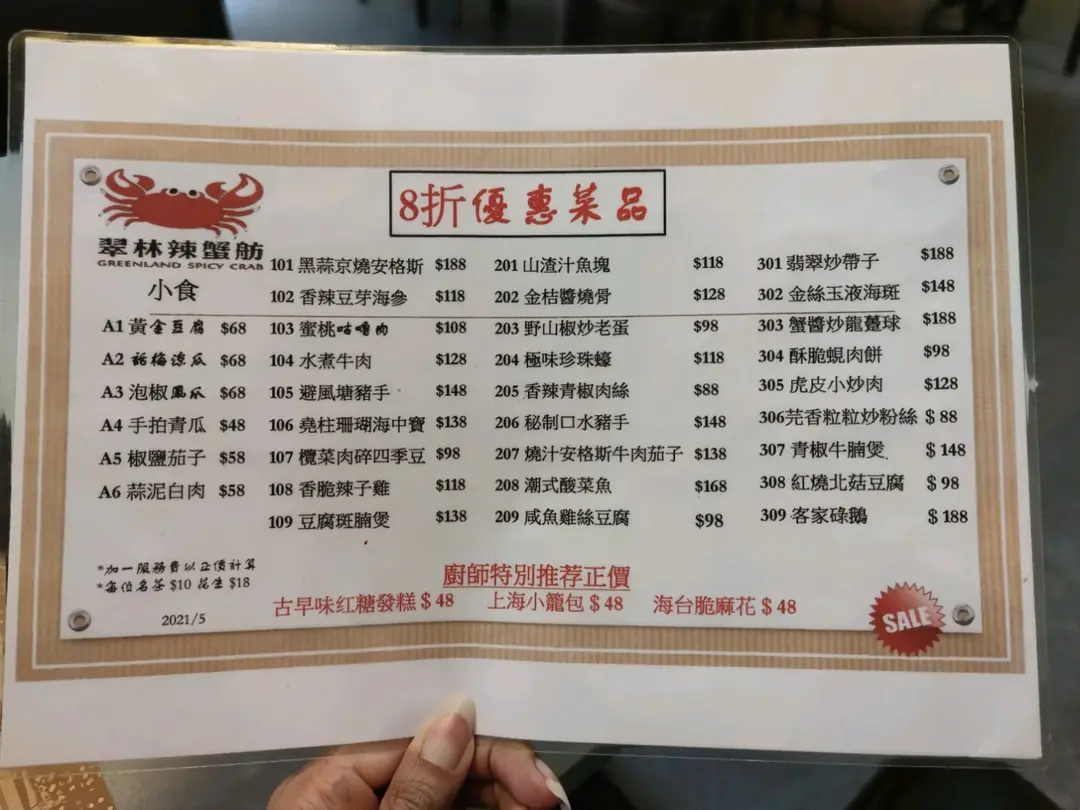 8折優惠菜品
翠林辣蟹舫
GREENLAND SPICY CRAB
小食
A1 黃金豆腐 $68
A2 話梅涼瓜 $68
A3 泡椒鳳爪 $68
A4 手拍青瓜 $48
A5 椒鹽茄子 $58
A6 蒜泥白肉 $58
101 黑蒜京燒安格斯 $188
102 香辣豆芽海參 $118
103 蜜桃咕嚕肉 $108
104 水煮牛肉 $128
105 避風塘豬手 $148
106 堯柱珊瑚海中寶 $138
107 欖菜肉碎四季豆 $98
108 香脆辣子雞 $118
109 豆腐斑腩煲 $138
201 山渣汁魚塊 $118
202 金桔醬燒骨 $128
203 野山椒炒老蛋 $98
204 極味珍珠蠔 $118
205 香辣青椒肉絲 $88
206 秘制口水豬手 $148
207 燒汁安格斯牛肉茄子 $138
208 潮式酸菜魚 $168
209 咸魚雞絲豆腐 $98
301 翡翠炒帶子 $188
302 金絲玉液海斑 $148
303 蟹醬炒龍躉球 $188
304 酥脆蜆肉餅 $98
305 虎皮小炒肉 $128
306芫香粒粒炒粉絲 $ 88
307 青椒牛腩煲 $ 148
308 紅燒北菇豆腐 $ 98
309 客家碌鵝 $ 188
*加一服務費以正價計算
*每位名茶 $10 花生 $18
2021/5
廚師特別推荐正價
古早味红糖發糕 $ 48 上海小籠包 $ 48 海台脆麻花 $ 48
SALE